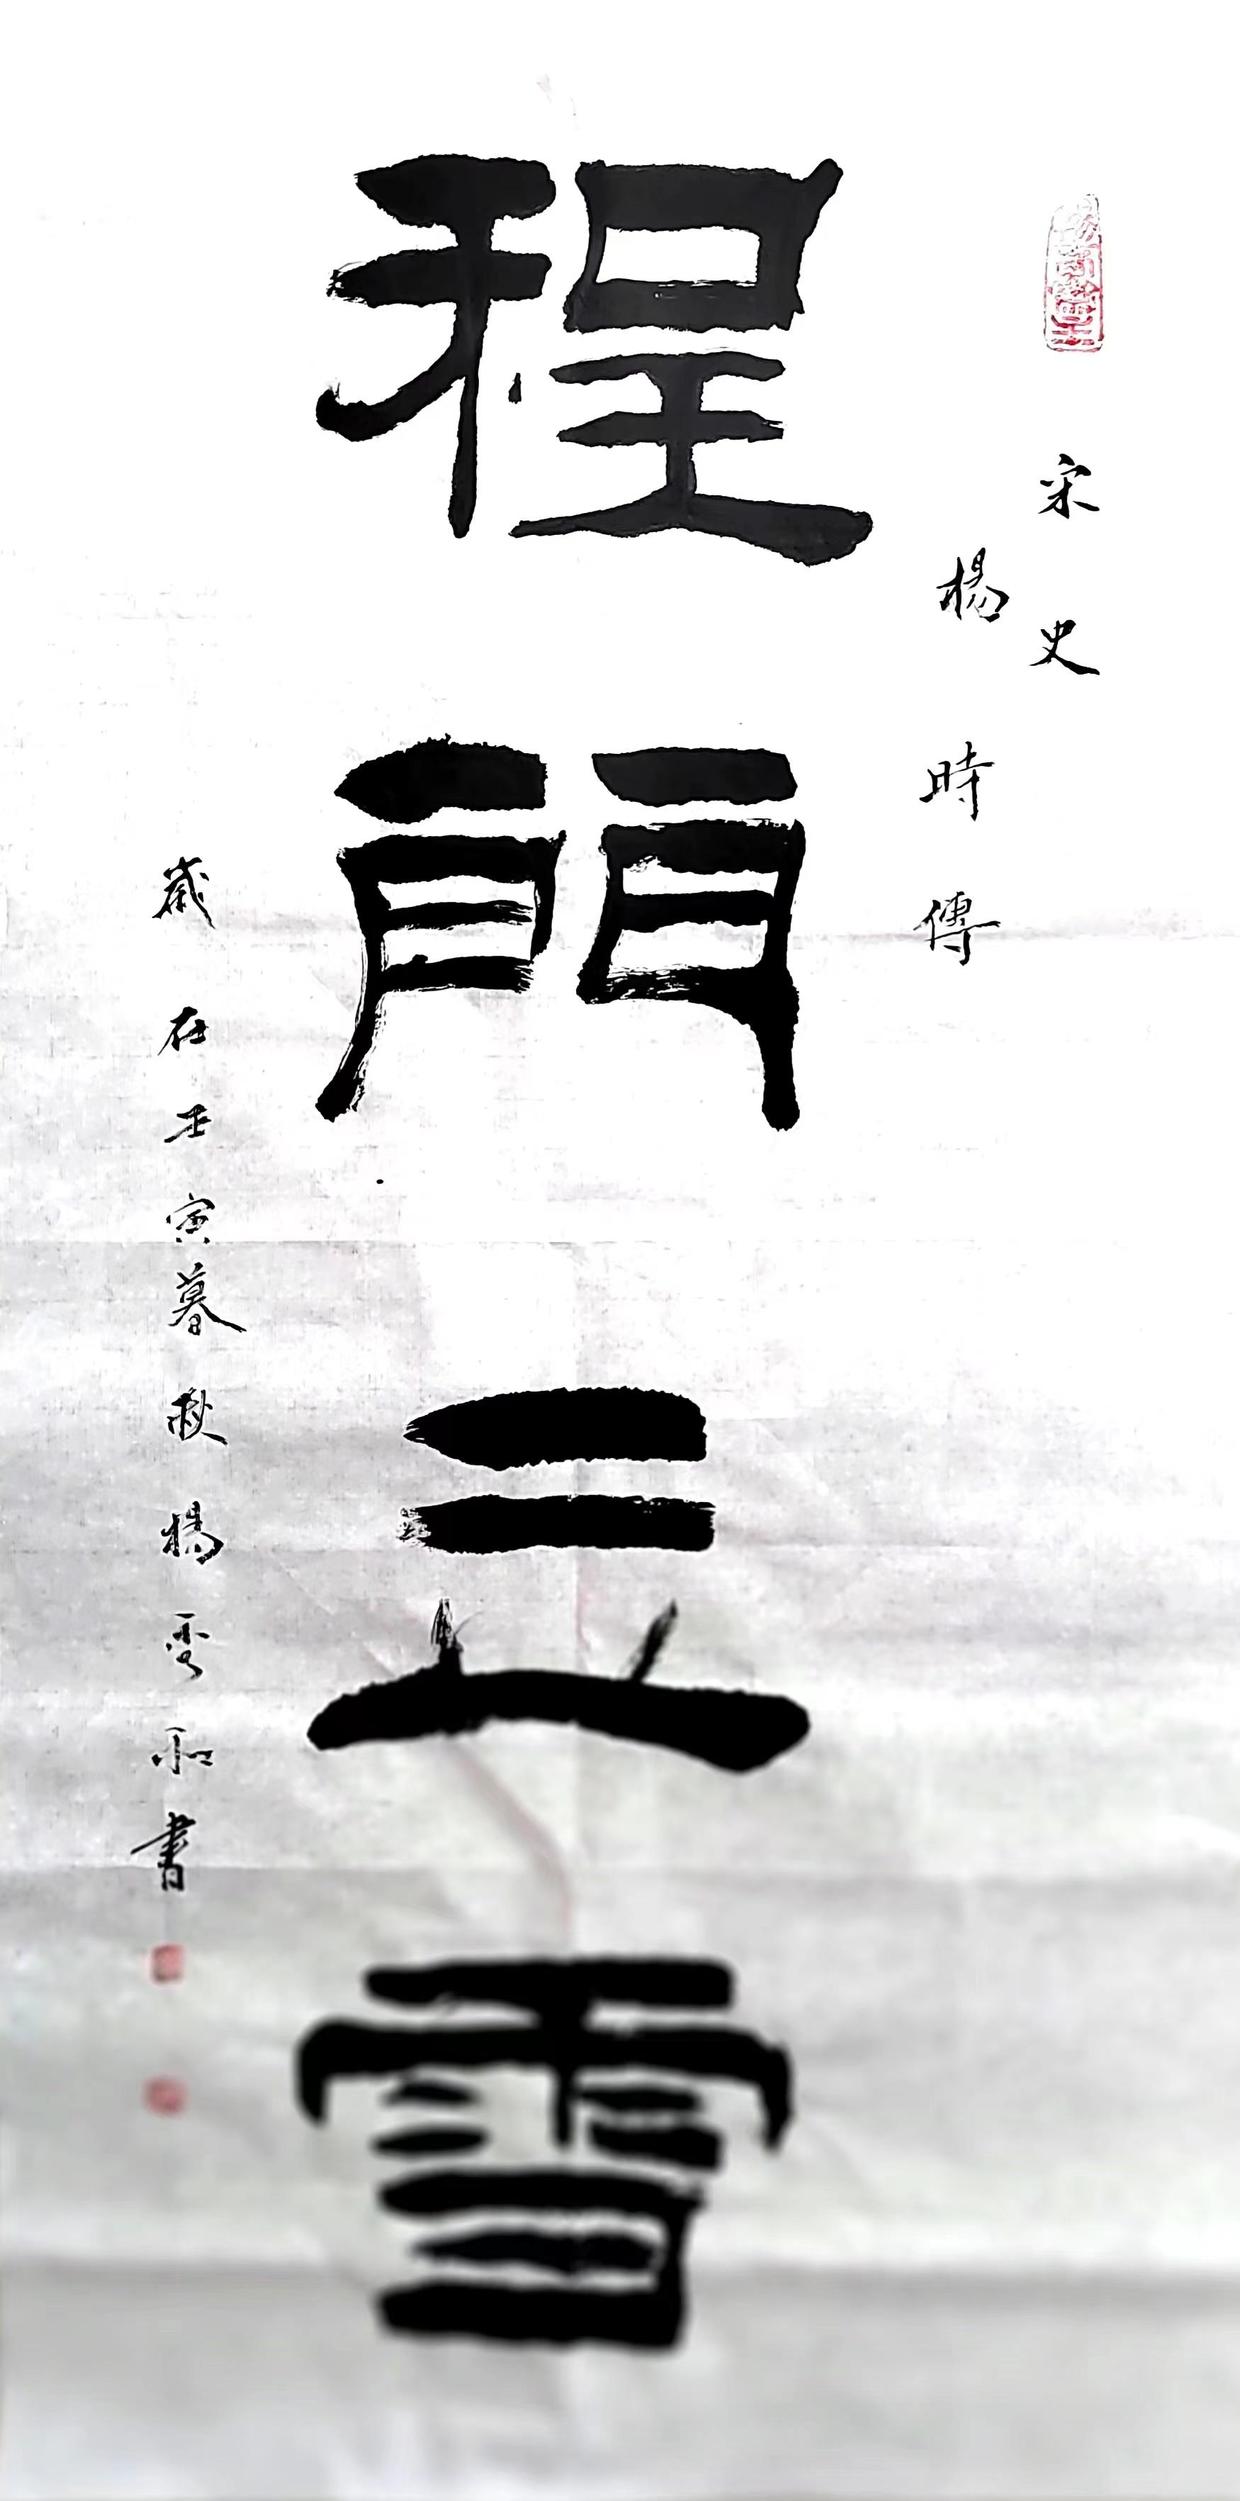 宋史
楊時傳
程門立雪
歲在壬寅暮秋楊和書